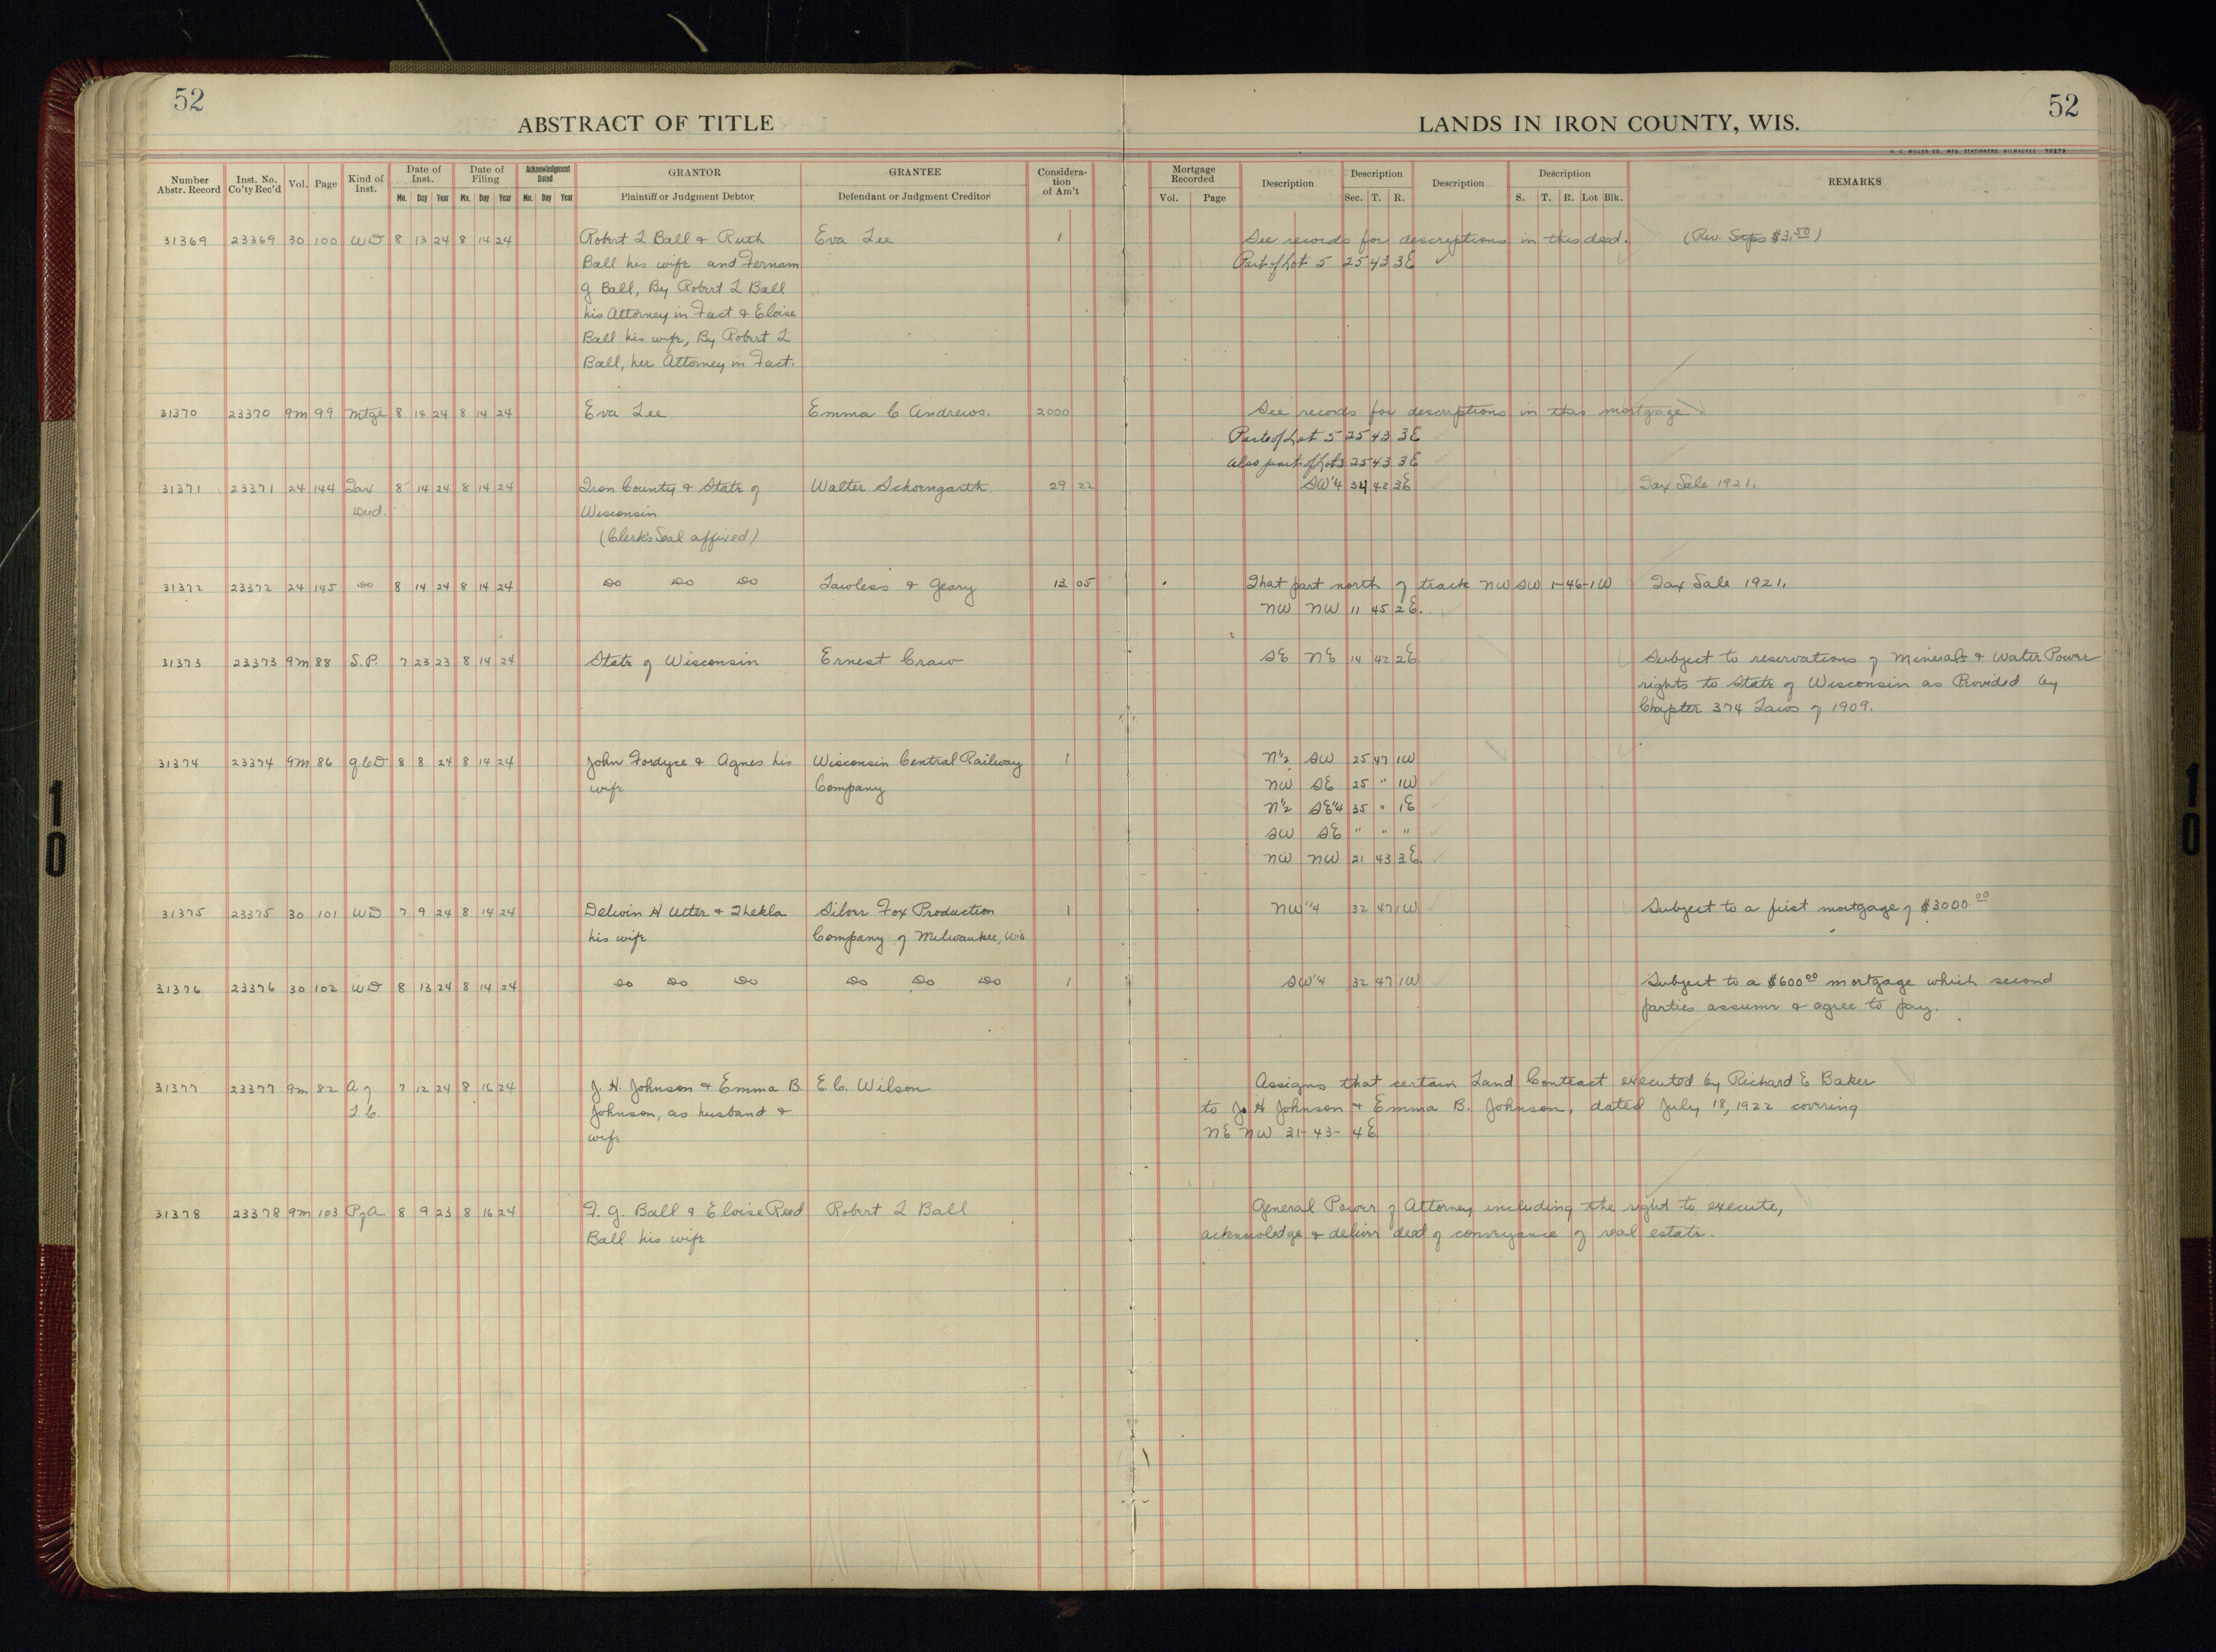 52
ABSTRACT OF TITLE
LANDS IN IRON COUNTY, WIS.
52
H. C. MILLER CO., MFG. STATIONERS, MILWAUKEE 70279
Number Abstr. Record | Inst. No. Co'ty Rec'd | Vol. | Page | Kind of Inst. | Date of Inst. Mo. Day Year | Date of Filing Mo. Day Year | Acknowledgment Dated Mo. Day Year | GRANTOR Plaintiff or Judgment Debtor | GRANTEE Defendant or Judgment Creditor | Considera-tion of Am't | Mortgage Recorded Vol. Page | Description | Description Sec. T. R. | Description | Description S. T. R. Lot Blk. | REMARKS
31369 23369 30 100 WD 8 13 24 8 14 24 Robert L Ball & Ruth Eva Lee 1 See records for descriptions in this deed. (Rev. Stps $3.50)
Ball his wife and Fernam Part of Lot 5 25 43 3E ✓
G Ball, By Robert L Ball
his Attorney in Fact & Eloise
Ball his wife, By Robert L
Ball, her Attorney in Fact.
31370 23370 9m 99 Mtge 8 14 24 8 14 24 Eva Lee Emma C Andrews. 2000 See records for descriptions in this mortgage
Part of Lot 5 25 43 3E
Also part of Lot 3 25 43 3E
31371 23371 24 144 Tax 8 14 24 8 14 24 Iron County & State of Walter Schorngarth 29 22 SW¼ 34 42 3E Tax Sale 1921.
Deed. Wisconsin
(Clerk's Seal affixed)
31372 23372 24 145 Do 8 14 24 8 14 24 Do Do Do Lawless & Geary 13 05 That part north of track NW SW 1-46-1W Tax Sale 1921.
NW NW 11 45 2E.
31373 23373 9m 88 S.P. 7 23 23 8 14 24 State of Wisconsin Ernest Craw SE NE 14 42 2E Subject to reservations of Minerals & Water Power
rights to State of Wisconsin as Provided by
Chapter 374 Laws of 1909.
31374 23374 9m 86 QCD 8 8 24 8 14 24 John Fordyce & Agnes his Wisconsin Central Railway 1 N½ SW 25 47 1W
wife Company NW SE 25 " 1W
N½ SE¼ 35 " 1E
SW SE " " "
NW NW 21 43 3E.
31375 23375 30 101 WD 7 9 24 8 14 24 Delwin H Utter & Thekla Silver Fox Production 1 NW¼ 32 47 1W Subject to a first mortgage of $3000.00
his wife Company of Milwaukee, Wis
31376 23376 30 102 WD 8 13 24 8 14 24 Do Do Do Do Do Do 1 SW¼ 32 47 1W Subject to a $600.00 mortgage which second
parties assume & agree to pay.
31377 23377 9m 82 A of 7 12 24 8 16 24 J. H. Johnson & Emma B. E. C. Wilson Assigns that certain Land Contract executed by Richard E Baker
L.C. Johnson, as husband & to J. H Johnson & Emma B. Johnson, dated July 18, 1922 covering
wife NE NW 31-43-4E
31378 23378 9m 103 P of A 8 9 23 8 16 24 F. G. Ball & Eloise Reed Robert L Ball General Power of Attorney including the right to execute,
Ball his wife acknowledge & deliver deed of conveyance of real estate.
10
10